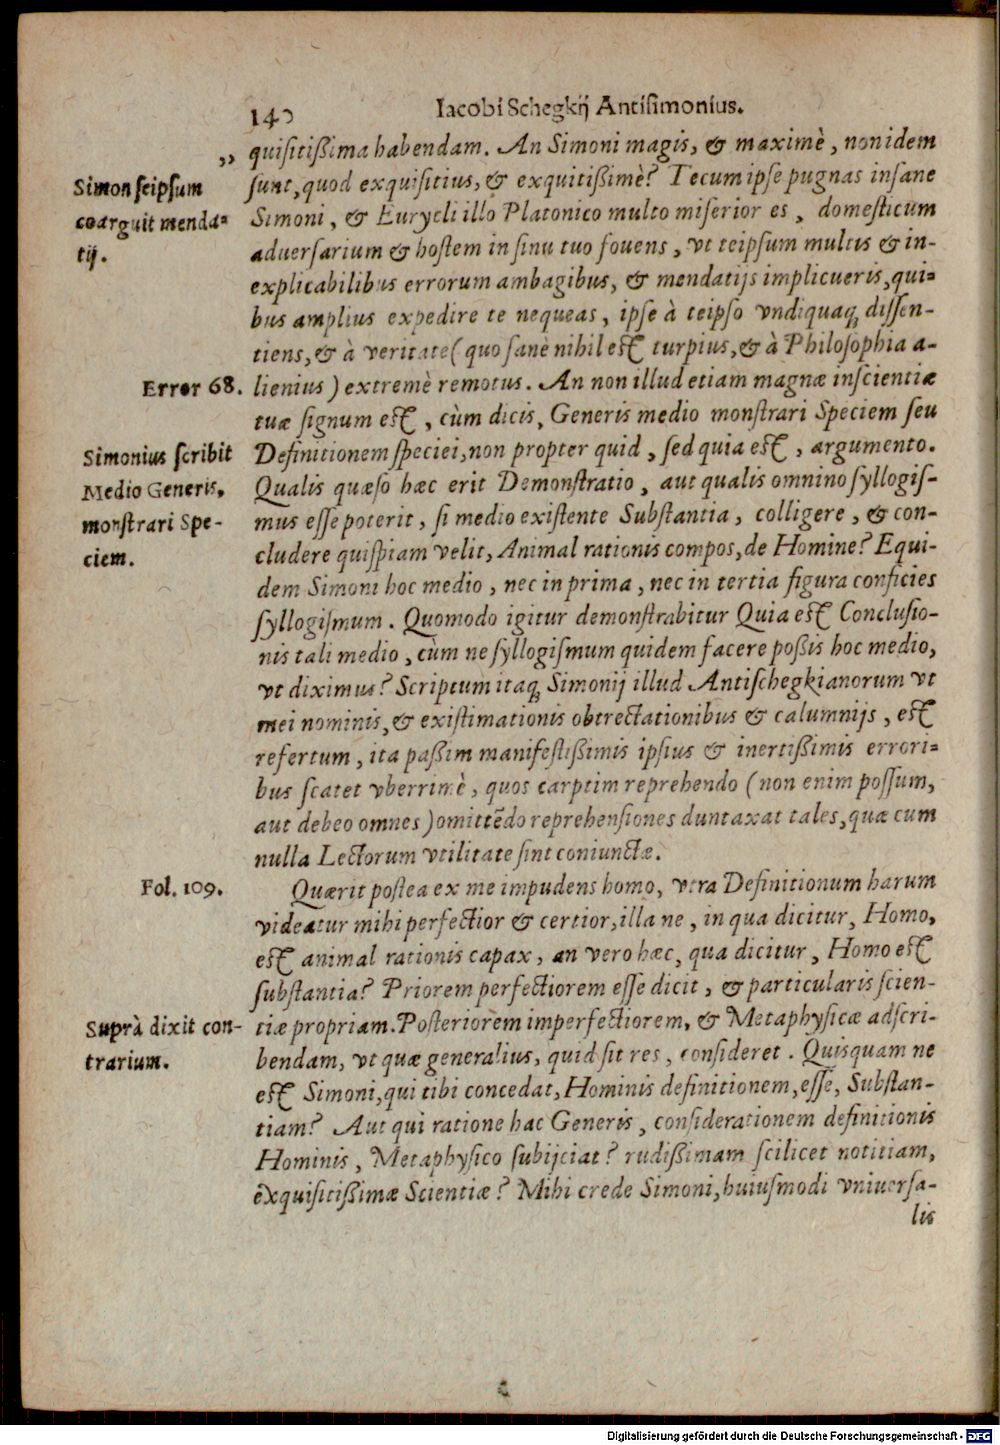 140
Iacobi Schegkij Antisimonius.
„ quisitißima habendam. An Simoni magis, & maximè, non idem
Simon seipsum
coarguit menda=
tij.
sunt, quod exquisitius, & exquitißimè? Tecum ipse pugnas insane
Simoni, & Eurycli illo Platonico multo miserior es, domesticum
adversarium & hostem in sinu tuo fovens, vt teipsum multis & in-
explicabilibus errorum ambagibus, & mendatijs implicueris, qui=
bus amplius expedire te nequeas, ipse à teipso vndiquaq; dissen-
tiens, & à veritate (quo sanè nihil est turpius, & à Philosophia a-
Error 68.
lienius) extremè remotus. An non illud etiam magnæ inscientiæ
tuæ signum est, cùm dicis, Generis medio monstrari Speciem seu
Simonius scribit
Medio Generis,
monstrari Spe-
ciem.
Definitionem speciei, non propter quid, sed quia est, argumento.
Qualis quæso hæc erit Demonstratio, aut qualis omnino syllogis-
mus esse poterit, si medio existente Substantia, colligere, & con-
cludere quispiam velit, Animal rationis compos, de Homine? Equi-
dem Simoni hoc medio, nec in prima, nec in tertia figura conficies
syllogismum. Quomodo igitur demonstrabitur Quia est Conclusio-
nis tali medio, cùm ne syllogismum quidem facere poßis hoc medio,
vt diximus? Scriptum itaq; Simonij illud Antischegkianorum vt
mei nominis, & existimationis obtrectationibus & calumnijs, est
refertum, ita paßim manifestißimis ipsius & inertißimis errori=
bus scatet vberrimè, quos carptim reprehendo (non enim possum,
aut debeo omnes) omittẽdo reprehensiones duntaxat tales, quæ cum
nulla Lectorum vtilitate sint coniunctæ.
Fol. 109.
Quærit postea ex me impudens homo, vtra Definitionum harum
videatur mihi perfectior & certior, illa ne, in qua dicitur, Homo,
est animal rationis capax, an vero hæc, qua dicitur, Homo est
substantia? Priorem perfectiorem esse dicit, & particularis scien-
Suprà dixit con-
trarium.
tiæ propriam. Posteriorem imperfectiorem, & Metaphysicæ adscri-
bendam, vt quæ generalius, quid sit res, consideret. Quisquam ne
est Simoni, qui tibi concedat, Hominis definitionem, esse, Substan-
tiam? Aut qui ratione hac Generis, considerationem definitionis
Hominis, Metaphysico subijciat? rudißimam scilicet notitiam,
exquisitißimæ Scientiæ? Mihi crede Simoni, huiusmodi vniversa-
lis
Digitalisierung gefördert durch die Deutsche Forschungsgemeinschaft - DFG